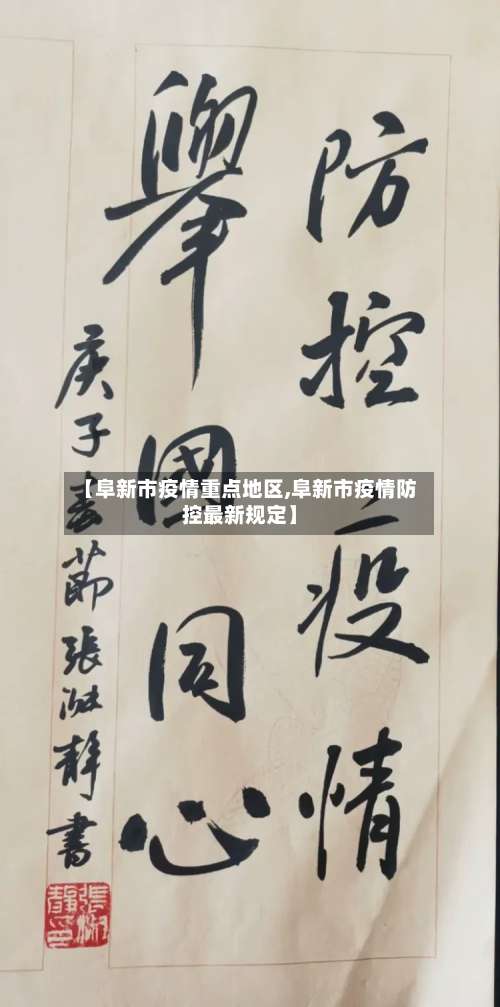 防控疫情
舉國同心
庚子春節張淑靜書
【阜新市疫情重点地区,阜新市疫情防
控最新规定】